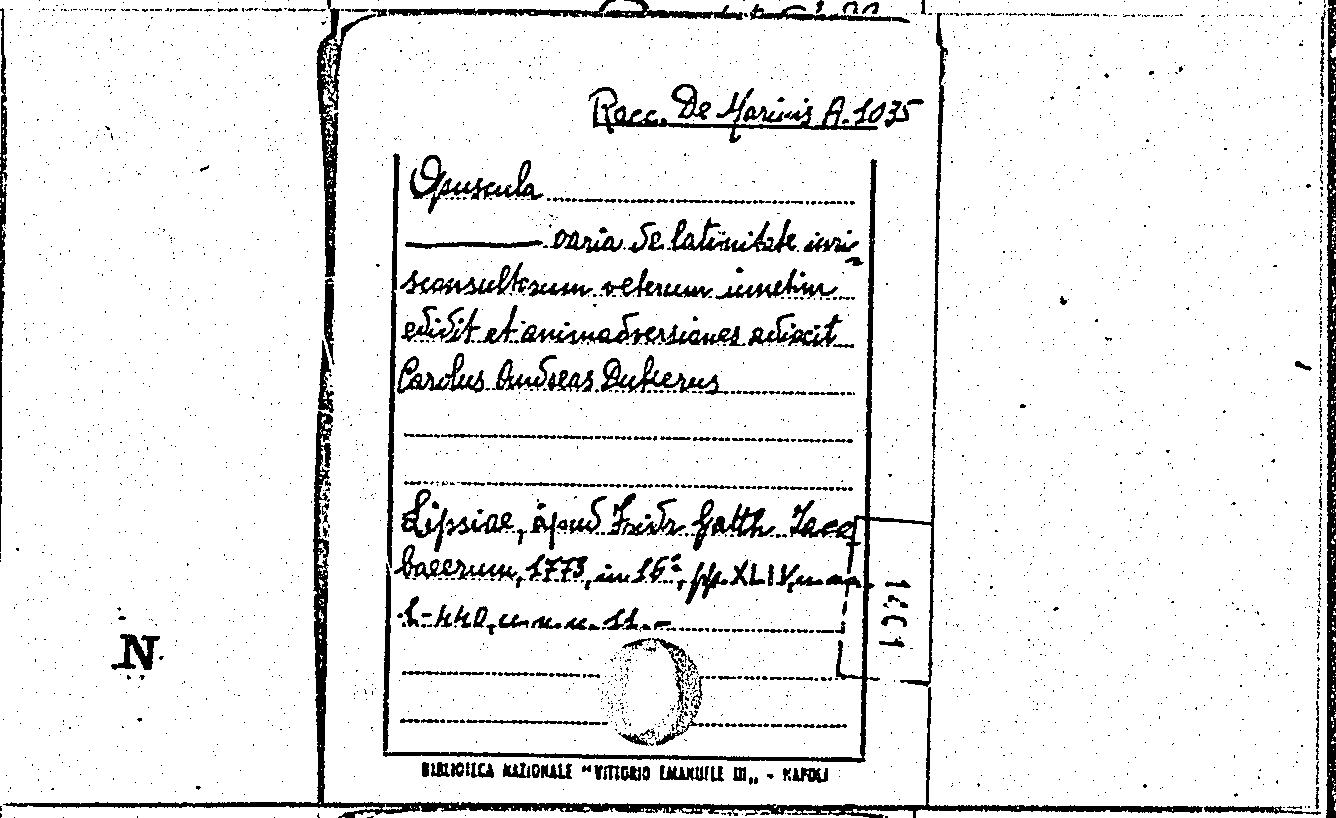 Racc. De Marinis A. 1035
Opuscula
varia de latinitate iuri-
sconsultorum veterum iunctim
edidit et animadversiones adiecit
Carolus Andreas Dukerus
Lipsiae, apud Fridr Gotth Iaco
baeerum, 1773, in 16°, pp. XLIV,
1-440, 11.-
N
BIBLIOTECA NAZIONALE "VITTORIO EMANUELE III„ - NAPOLI